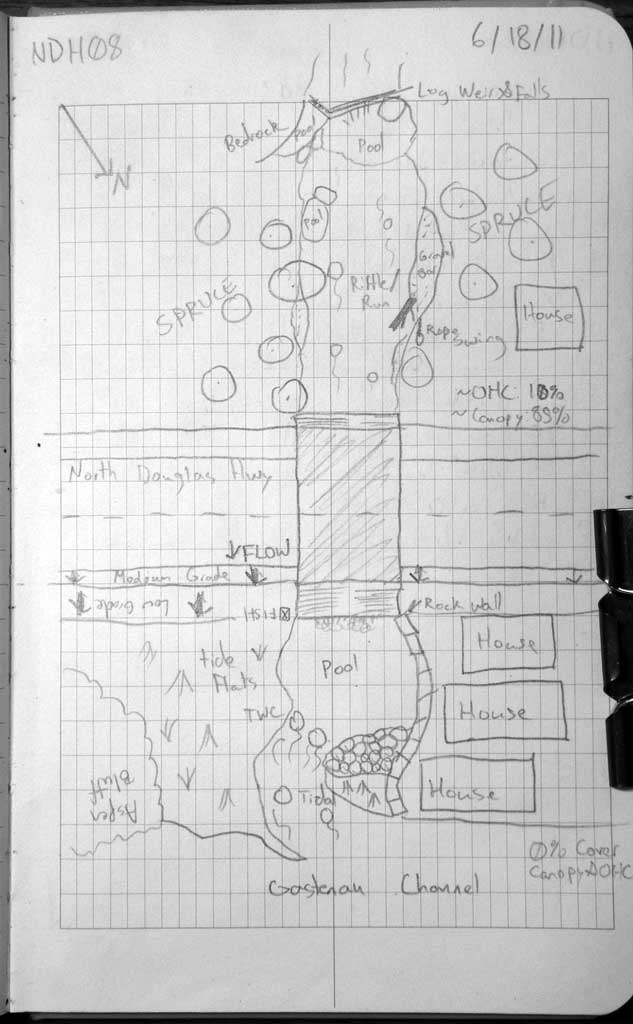 NDH08
6/18/11
Log Weir & Falls
Bedrock
Pool
Pool
N
Pool
SPRUCE
Gravel
Bar
SPRUCE
Riffle/
Run
House
Rope
Swing
~OHC: 10%
~Canopy: 85%
North Douglas Hwy
FLOW
Medium Grade
Low Grade
FISH
Rock Wall
House
tide
flats
Pool
TWC
House
House
Aspen
Bluff
Tidal
0% Cover
Canopy & OHC
Gastenau Channel